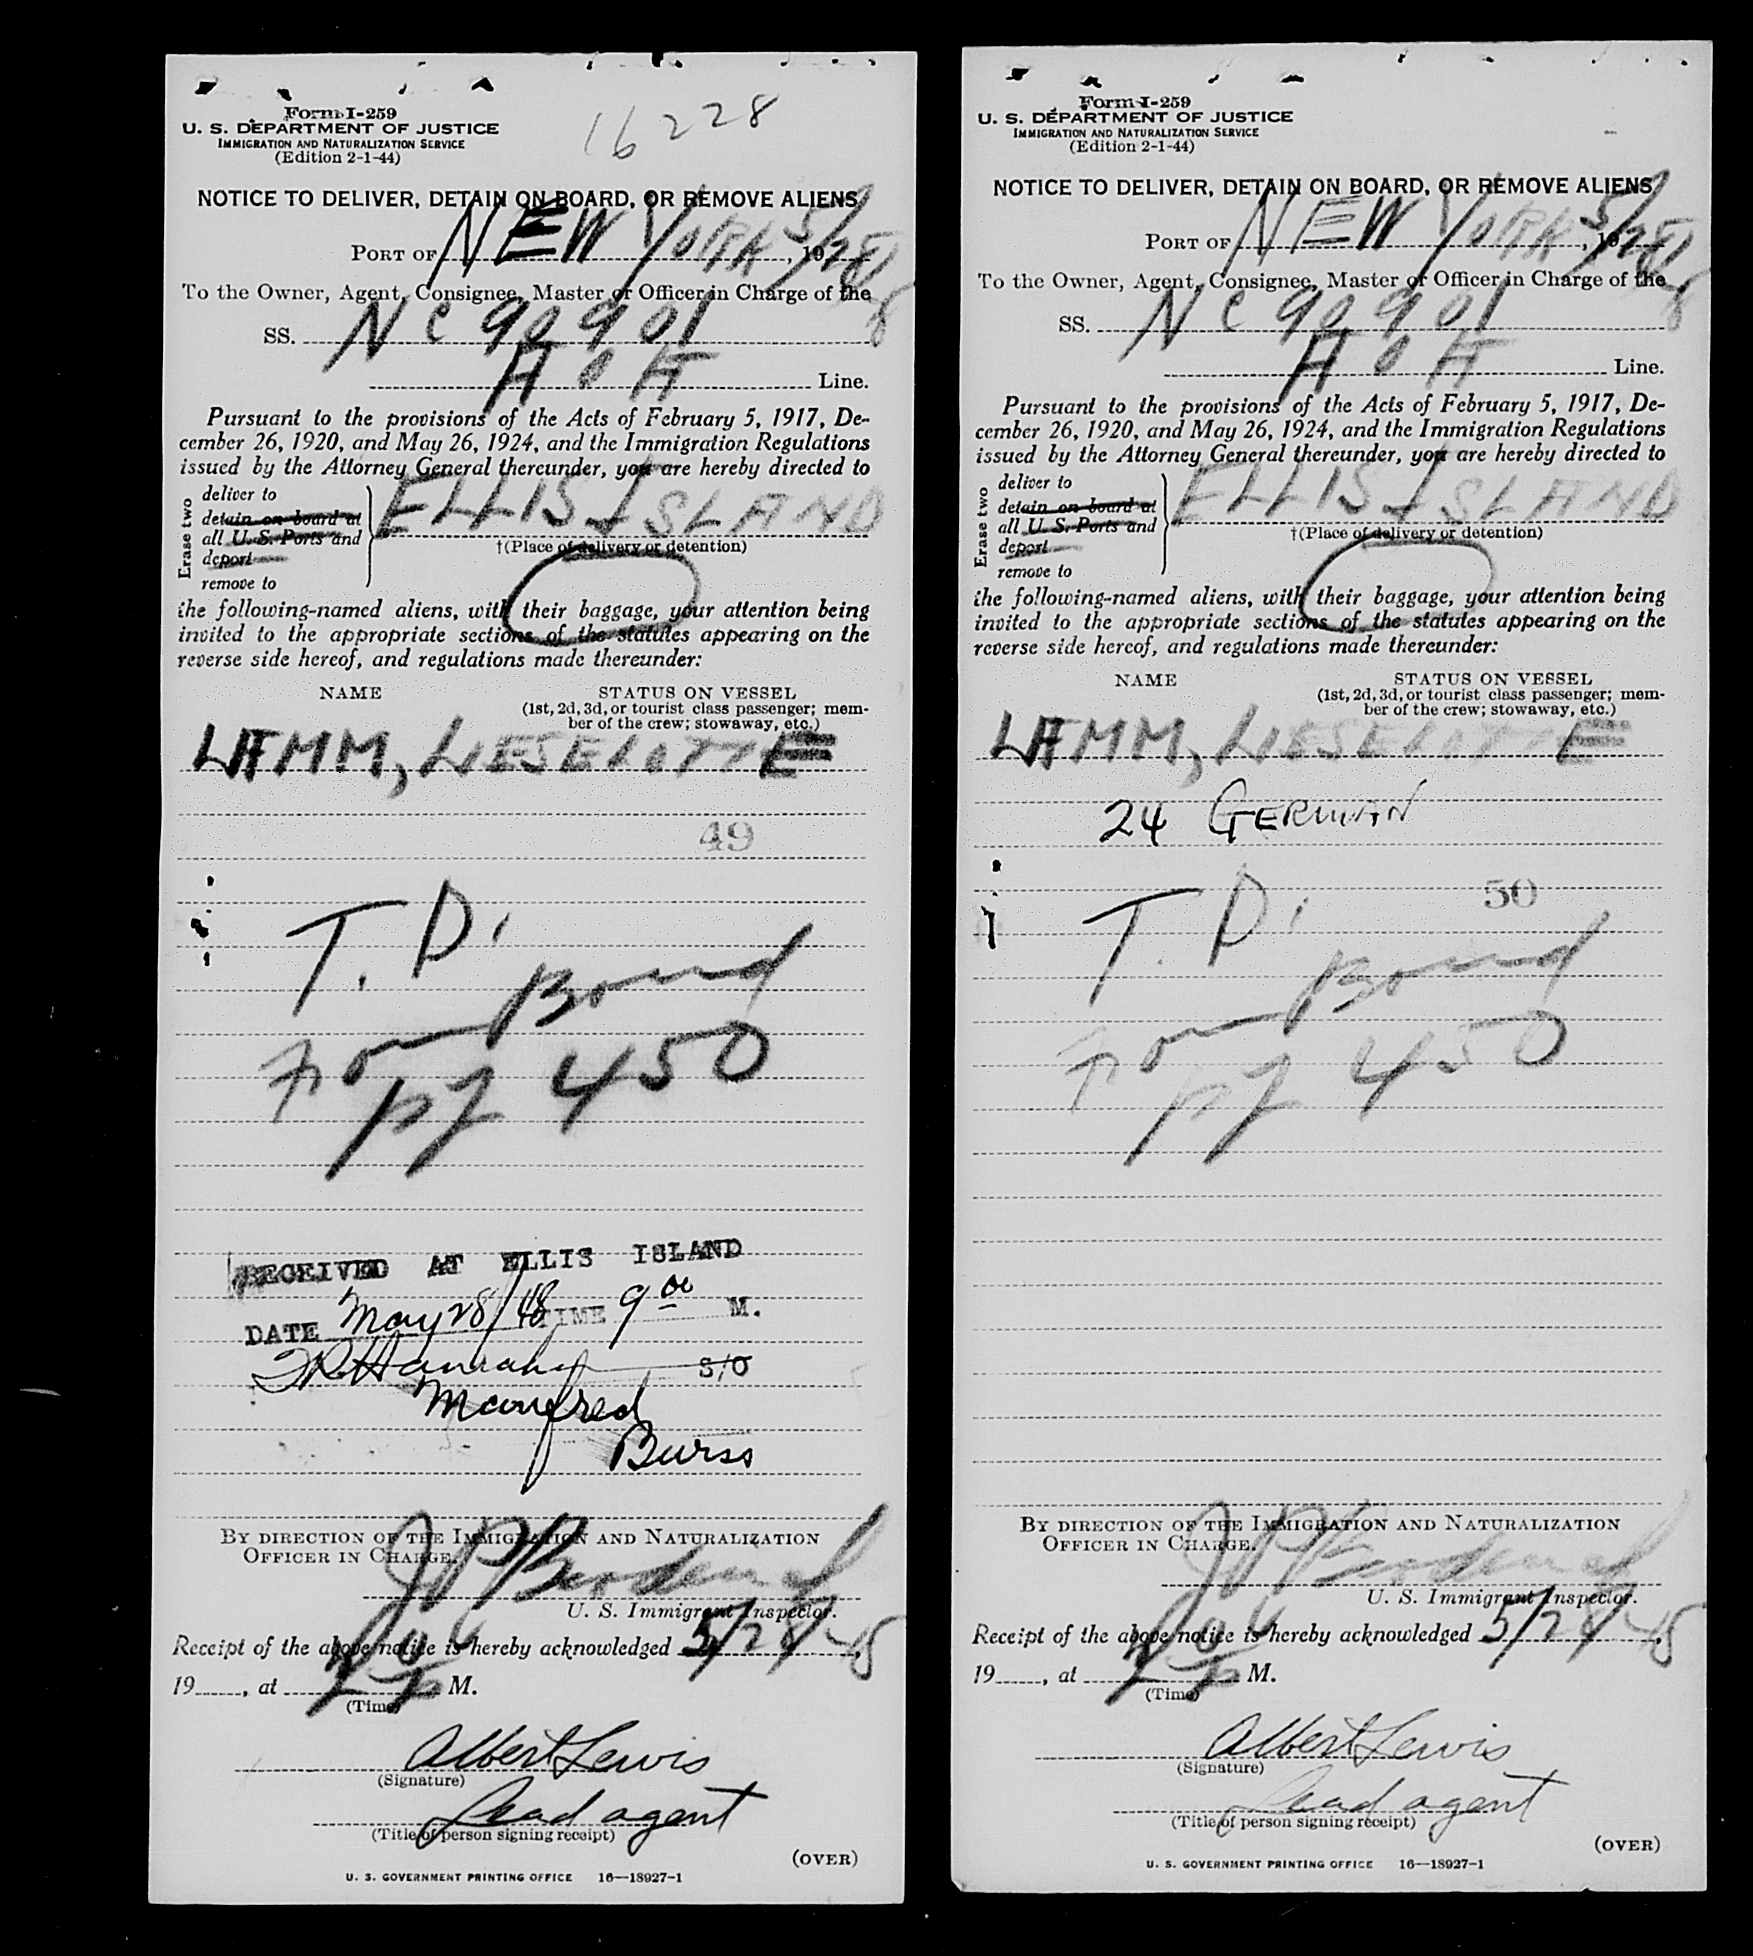 Form I-259
U. S. DEPARTMENT OF JUSTICE
IMMIGRATION AND NATURALIZATION SERVICE
(Edition 2-1-44)
16228
NOTICE TO DELIVER, DETAIN ON BOARD, OR REMOVE ALIENS
PORT OF NEW YORK 5/28, 19
To the Owner, Agent, Consignee, Master or Officer in Charge of the
SS. NC 90901
AOA Line.
Pursuant to the provisions of the Acts of February 5, 1917, De-
cember 26, 1920, and May 26, 1924, and the Immigration Regulations
issued by the Attorney General thereunder, you are hereby directed to
Erase two
deliver to
detain on board at
all U. S. Ports and
deport
remove to
ELLIS ISLAND
†(Place of delivery or detention)
the following-named aliens, with their baggage, your attention being
invited to the appropriate sections of the statutes appearing on the
reverse side hereof, and regulations made thereunder:
NAME STATUS ON VESSEL
(1st, 2d, 3d, or tourist class passenger; mem-
ber of the crew; stowaway, etc.)
LAMM, LIESELOTTE
49
T. D.
Bond
pg 450
RECEIVED AT ELLIS ISLAND
DATE May 28/48 TIME 9 00 M.
S/O
Manfred
Burss
BY DIRECTION OF THE IMMIGRATION AND NATURALIZATION
OFFICER IN CHARGE.
U. S. Immigrant Inspector.
Receipt of the above notice is hereby acknowledged 5/28/48
19____, at M.
(Time)
Albert Lewis
(Signature)
Lead agent
(Title of person signing receipt)
(OVER)
U. S. GOVERNMENT PRINTING OFFICE 16—18927-1
Form I-259
U. S. DEPARTMENT OF JUSTICE
IMMIGRATION AND NATURALIZATION SERVICE
(Edition 2-1-44)
NOTICE TO DELIVER, DETAIN ON BOARD, OR REMOVE ALIENS
PORT OF NEW YORK 5/28, 19
To the Owner, Agent, Consignee, Master or Officer in Charge of the
SS. NC 90901
AOA Line.
Pursuant to the provisions of the Acts of February 5, 1917, De-
cember 26, 1920, and May 26, 1924, and the Immigration Regulations
issued by the Attorney General thereunder, you are hereby directed to
Erase two
deliver to
detain on board at
all U. S. Ports and
deport
remove to
ELLIS ISLAND
†(Place of delivery or detention)
the following-named aliens, with their baggage, your attention being
invited to the appropriate sections of the statutes appearing on the
reverse side hereof, and regulations made thereunder:
NAME STATUS ON VESSEL
(1st, 2d, 3d, or tourist class passenger; mem-
ber of the crew; stowaway, etc.)
LAMM, LIESELOTTE
24 GERMAN
50
T. D.
Bond
pg 450
BY DIRECTION OF THE IMMIGRATION AND NATURALIZATION
OFFICER IN CHARGE.
U. S. Immigrant Inspector.
Receipt of the above notice is hereby acknowledged 5/28/48
19____, at M.
(Time)
Albert Lewis
(Signature)
Lead agent
(Title of person signing receipt)
(OVER)
U. S. GOVERNMENT PRINTING OFFICE 16—18927-1